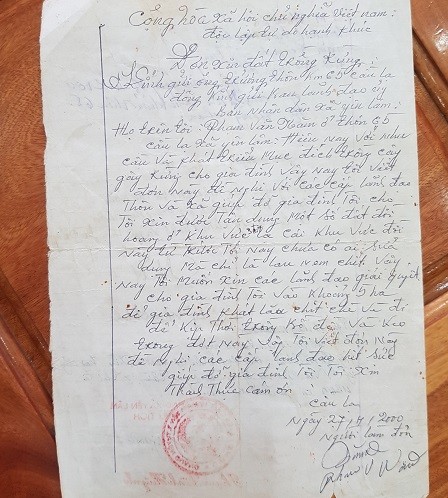 Cộng hòa xã hội chủ nghĩa Việt nam:
độc lập tự do hạnh phúc
Đơn xin đất trồng rừng:
Kính gửi ông trưởng thôn câu la
đồng kính gửi ban lãnh đạo ủy
bản nhân dân xã yên lâm:
Họ tên tôi: Phạm Văn ở thôn
câu la xã yên lâm: Hiện nay với nhu
cầu và phát triển mục đích trồng cây
gây rừng cho gia đình vậy nay tôi viết
đơn này đề nghị với các cấp lãnh đạo
thôn và xã giúp đỡ gia đình tôi cho
Tôi xin được tận dụng một số đất đồi
hoang ở khu vực la cái khu vực đồi
này từ trước tới nay chưa có ai sử
dụng mà chỉ là lau vậy
nay tôi muốn xin các lãnh đạo giải quyết
cho gia đình tôi vào khoảng 5 ha
để gia đình phát
để kịp thời trồng bồ đề và keo
trong đợt này vậy tôi viết đơn này
đề nghị các cấp lãnh đạo hết sức
giúp đỡ gia đình tôi Tôi xin
Thành thực cám ơn:
câu la
Ngày 27/ /2000
Người làm đơn
Phạm V